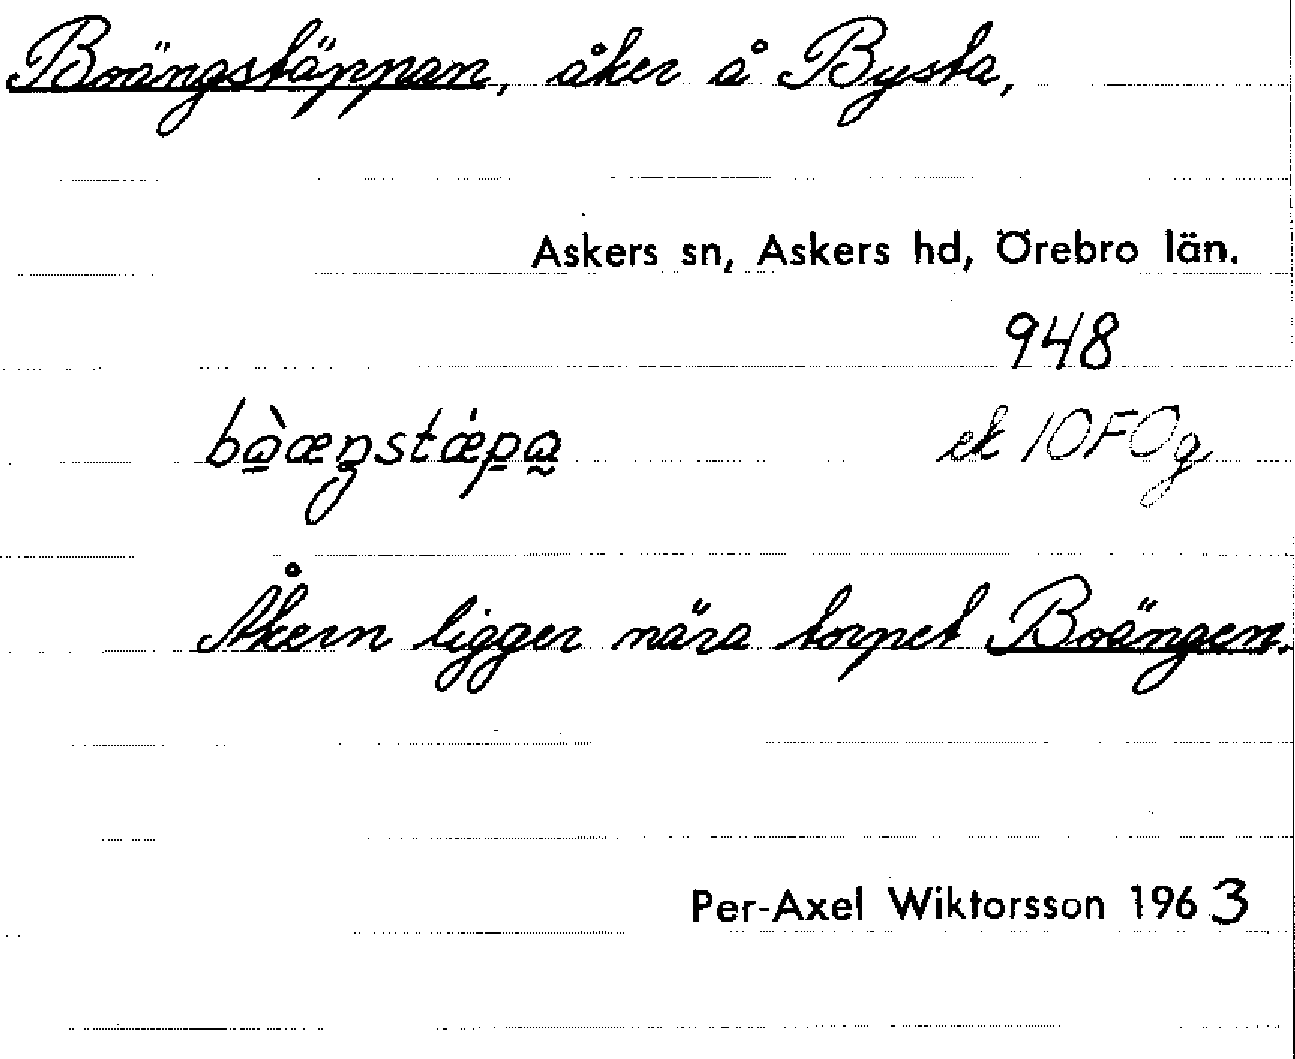 Boängstäppan, åker å Bysta,
Askers sn, Askers hd, Örebro län.
948
ek 10F0g
Åkern ligger nära torpet Boängen.
Per-Axel Wiktorsson 1963